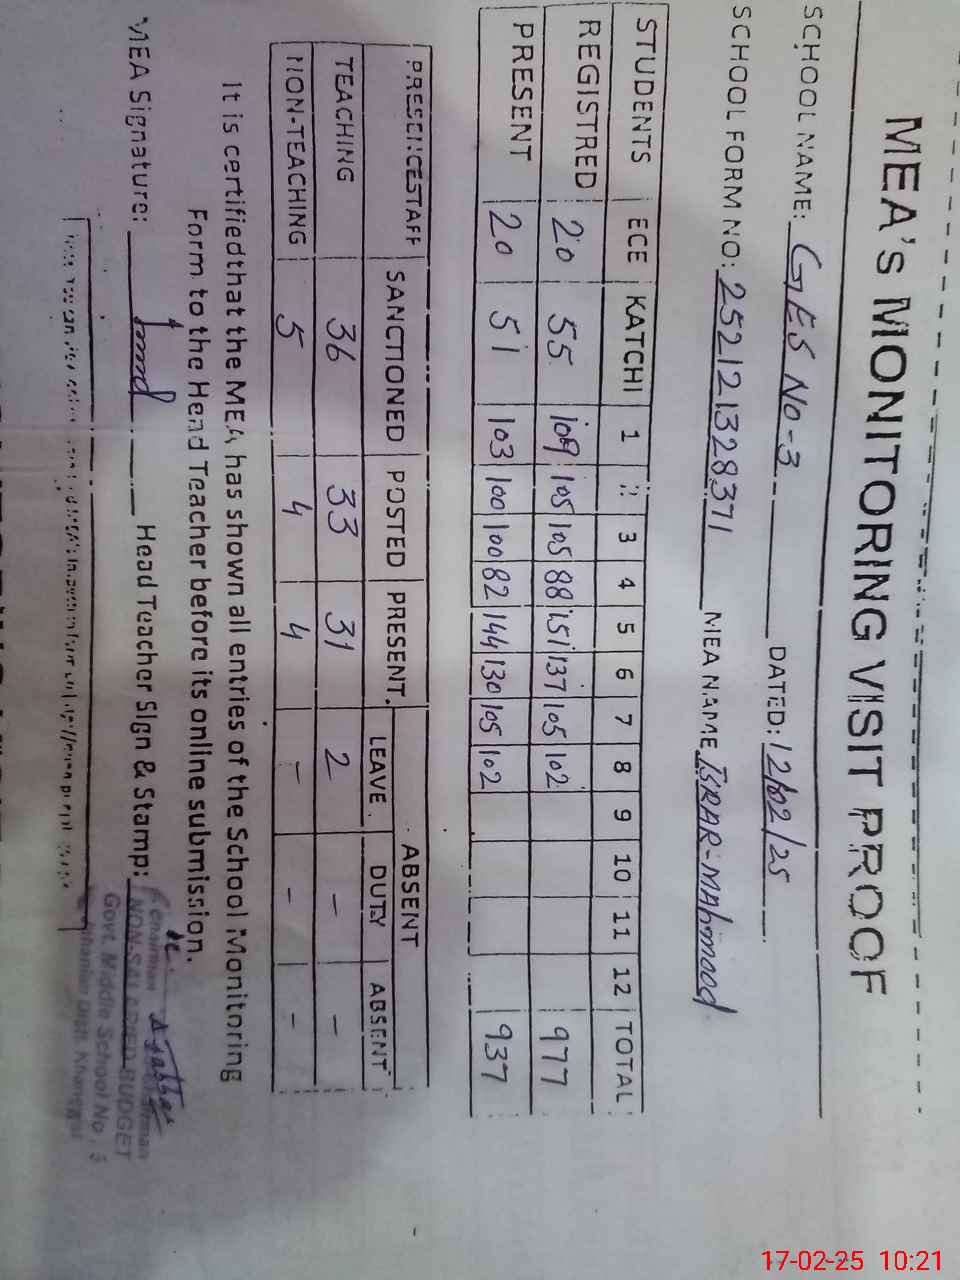 MEA's MONITORING VISIT PROOF
SCHOOL NAME: GES No-3 DATED: 12/02/25
SCHOOL FORM NO: 252121328371 MEA NAME ISRAR-MAhmood
STUDENTS ECE KATCHI 1 2 3 4 5 6 7 8 9 10 11 12 TOTAL
REGISTRED 20 55 109 105 105 88 151 137 105 102 977
PRESENT 20 51 103 100 100 82 144 130 105 102 937
PRESENCESTAFF SANCTIONED POSTED PRESENT ABSENT
LEAVE DUTY ABSENT
TEACHING 36 33 31 2 - -
NON-TEACHING 5 4 4 - - -
It is certified that the MEA has shown all entries of the School Monitoring
Form to the Head Teacher before its online submission.
MEA Signature: Head Teacher Sign & Stamp:
NON-SALARIED BUDGET
Govt. Middle School No. 3
Distt. Khanewal
17-02-25 10:21